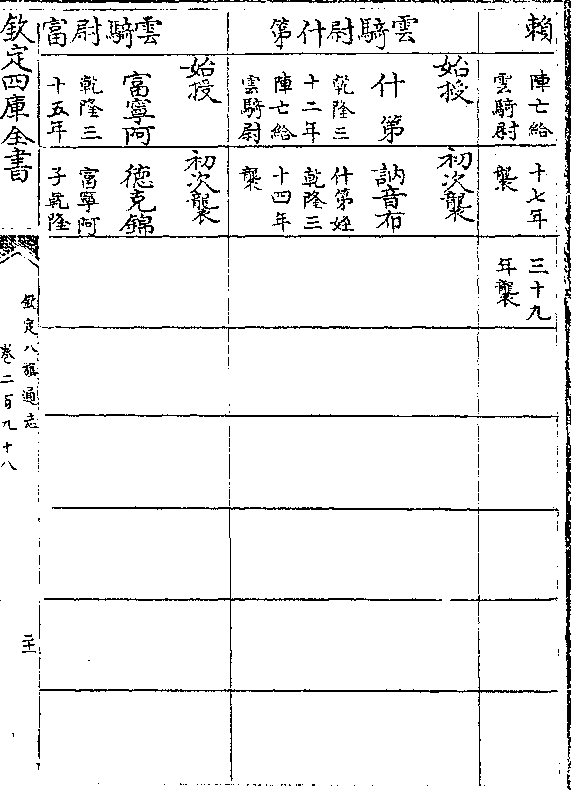 賴
陣亡給
雲騎尉
十七年
襲
三十九
年襲
雲騎尉什第
始授
什第
乾隆三
十二年
陣亡給
雲騎尉
初次襲
訥音布
什第姪
乾隆三
十四年
襲
雲騎尉富
始授
富寧阿
乾隆三
十五年
初次襲
德克錦
富寧阿
子乾隆
欽定四庫全書
欽定八旗通志
卷二百九十八